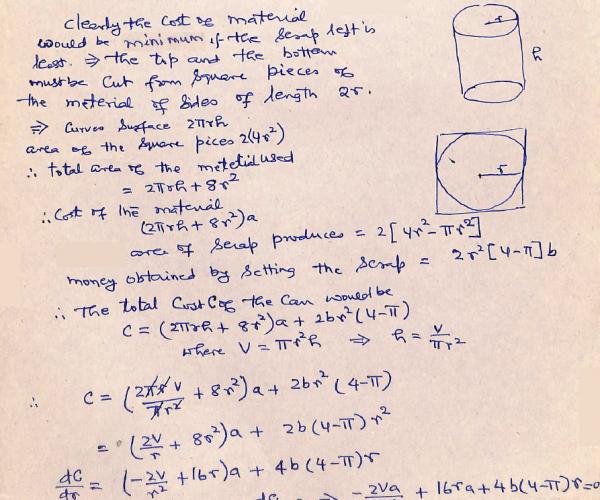 Clearly the cost of material
would be minimum if the scrap left is
least. ⇒ the top and the bottom
must be cut from square pieces of
the meterial of sides of length 2r.
⇒ Curves Surface 2πrh
area of the square pices 2(4r²)
∴ total area of the used
= 2πrh + 8r²
∴ Cost of the material
(2πrh + 8r²)a
area of scrap produces = 2[4r² - πr²]
money obtained by setting the scrap = 2r²[4-π]b
∴ The total Cost C of the Can would be
C = (2πrh + 8r²)a + 2br²(4-π)
where V = πr²h ⇒ h = V/πr²
∴ C = (2πrV/πr² + 8r²)a + 2br²(4-π)
= (2V/r + 8r²)a + 2b(4-π)r²
dC/dr = (-2V/r² + 16r)a + 4b(4-π)r
dC ⇒ -2Va + 16ra + 4b(4-π)r=0
r
h
r